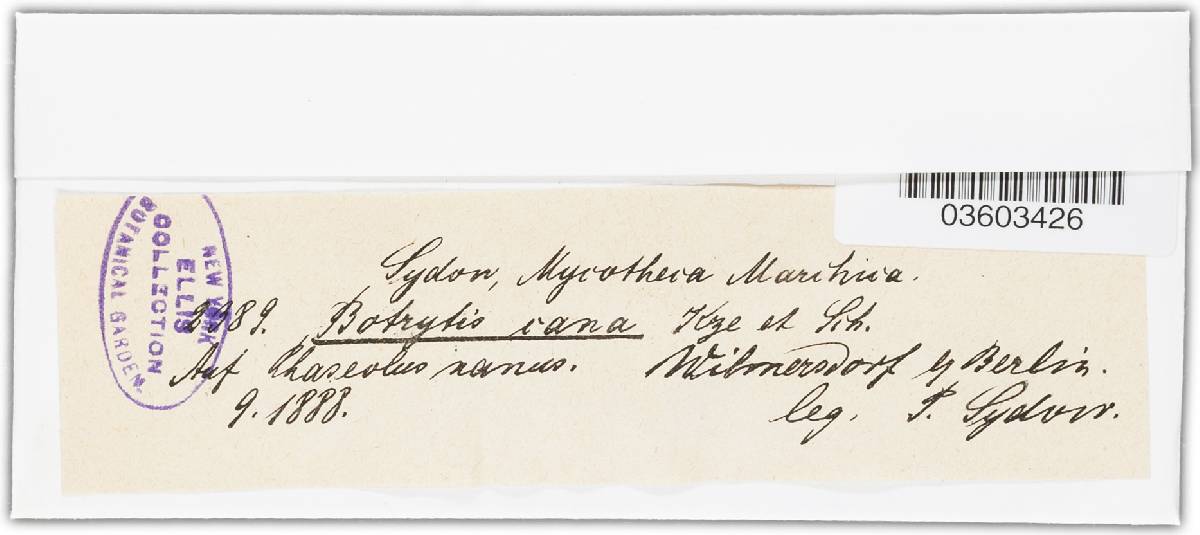 03603426
NEW YORK
ELLIS
COLLECTION
BOTANICAL GARDEN.
Sydow, Mycotheca Marchica.
2389. Botrytis cana Kze et Sch.
Auf Phaseolus nanus. Wilmersdorf b/Berlin.
9. 1888. leg. P. Sydow.